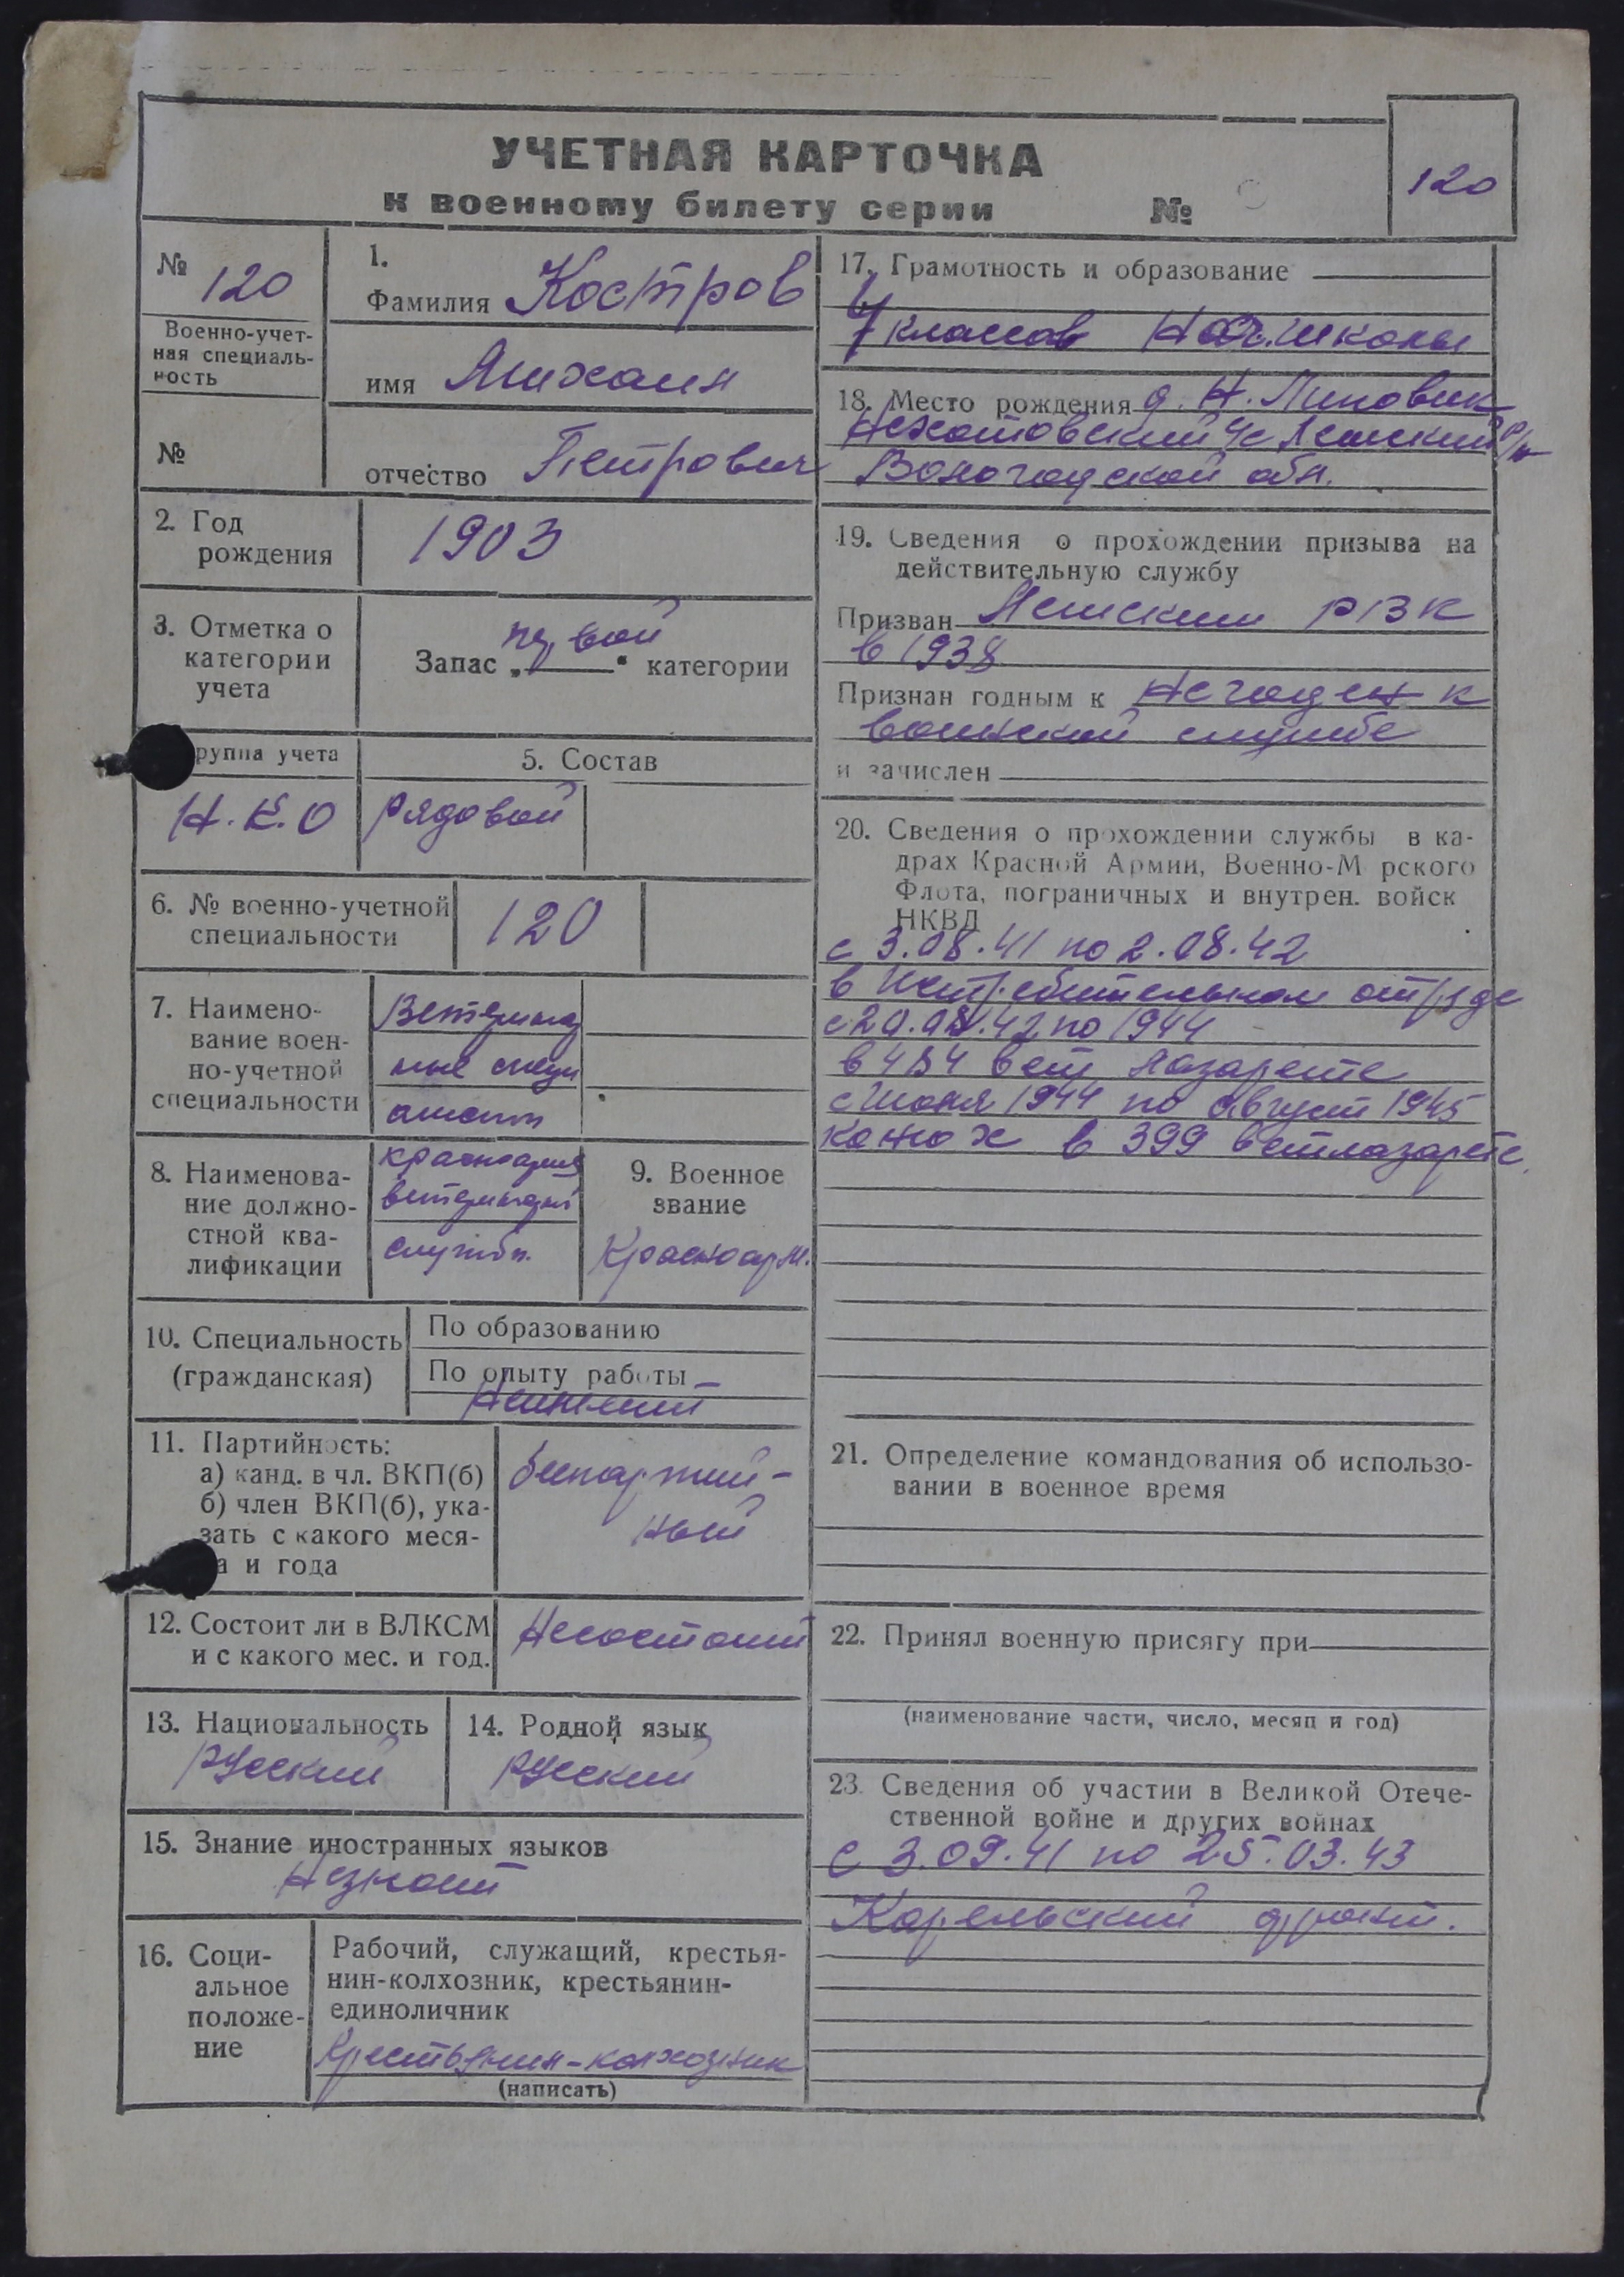 УЧЕТНАЯ КАРТОЧКА
к военному билету серии №
120
№ 120
Военно-учет-
ная специаль-
ность
№
1.
Фамилия Костров
имя Михаил
отчество Петрович
2. Год
рождения
1903
3. Отметка о
категории
учета
Запас „первой“ категории
руппа учета
Н.К.О
5. Состав
рядовой
6. № военно-учетной
специальности
120
7. Наимено-
вание воен-
но-учетной
специальности
Ветеринар
ные специ
алисты
8. Наименова-
ние должно-
стной ква-
лификации
красноармеец
ветеринарн
службы.
9. Военное
звание
Красноарм.
10. Специальность
(гражданская)
По образованию
По опыту работы
Неимеет
11. Партийность:
а) канд. в чл. ВКП(б)
б) член ВКП(б), ука-
зать с какого меся-
а и года
беспартий-
ный
12. Состоит ли в ВЛКСМ
и с какого мес. и год.
Несостоит
13. Национальность
Русский
14. Родной язык
Русский
15. Знание иностранных языков
Незнает
16. Соци-
альное
положе-
ние
Рабочий, служащий, крестья-
нин-колхозник, крестьянин-
единоличник
Крестьянин-колхозник
(написать)
17. Грамотность и образование
4 классов Нач.школы
18. Место рождения д. Н. Липовик
с/с р/н
Вологодской обл.
19. Сведения о прохождении призыва на
действительную службу
Призван РВК
в 1938
Признан годным к Негоден к
воинской службе
и зачислен
20. Сведения о прохождении службы в ка-
драх Красной Армии, Военно-М рского
Флота, пограничных и внутрен. войск
НКВД
с 3.08.41 по 2.08.42
в Истребительном отряде
с 20.08.42 по 1944
в 484 вет лазарете
с Июня 1944 по август 1945
конюх в 399 ветлазарете.
21. Определение командования об использо-
вании в военное время
22. Принял военную присягу при
(наименование части, число, месяц и год)
23. Сведения об участии в Великой Отече-
ственной войне и других войнах
с 3.09.41 по 25.03.43
Карельский фронт.